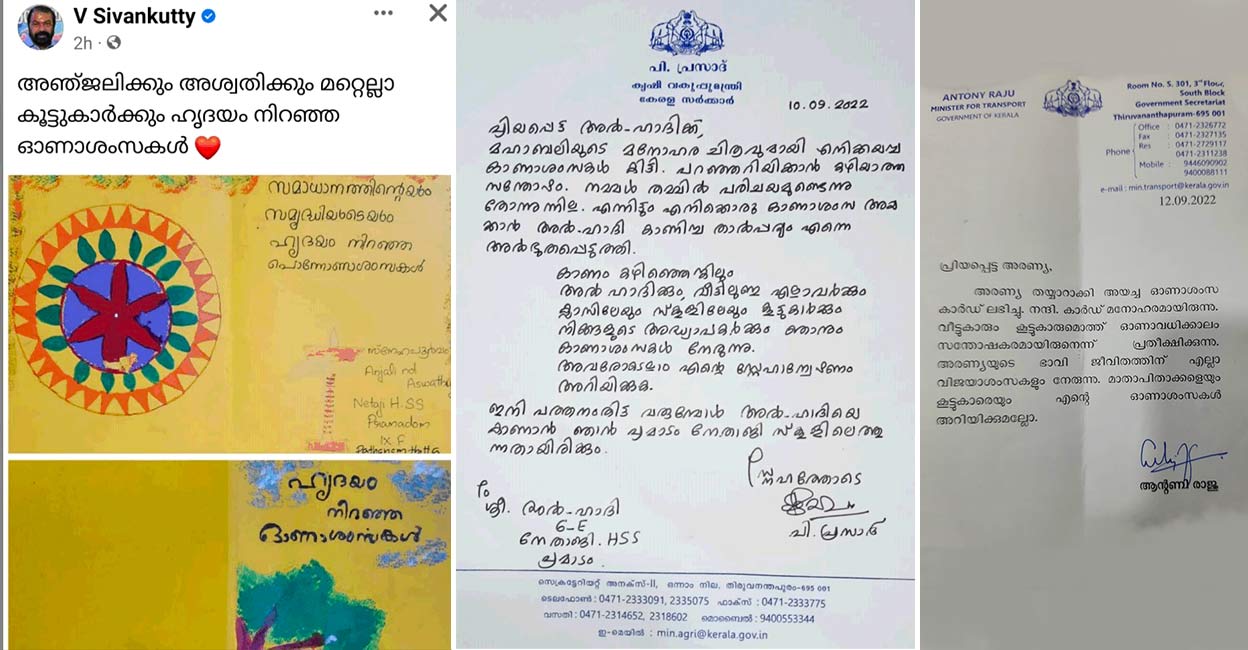 V Sivankutty
2h
അഞ്ജലിക്കും അശ്വതിക്കും മറ്റെല്ലാ
കൂട്ടുകാർക്കും ഹൃദയം നിറഞ്ഞ
ഓണാശംസകൾ ❤️
സമാധാനത്തിന്റെയും
സമൃദ്ധിയുടെയും
ഹൃദയം നിറഞ്ഞ
പൊന്നോണാശംസകൾ
സ്നേഹപൂർവം
Anjali nd
Aswathi
Netaji H.SS
Pramadom
IX F
Pathanamthitta
ഹൃദയം
നിറഞ്ഞ
ഓണാശംസകൾ
പി. പ്രസാദ്
കൃഷി വകുപ്പുമന്ത്രി
കേരള സർക്കാർ
10.09.2022
പ്രിയപ്പെട്ട അൽ-ഹാദിക്ക്,
മഹാബലിയുടെ മനോഹര ചിത്രവുമായി എനിക്കയച്ച
ഓണാശംസകൾ കിട്ടി. പറഞ്ഞറിയിക്കാൻ കഴിയാത്ത
സന്തോഷം. നമ്മൾ തമ്മിൽ പരിചയമുണ്ടെന്നു
തോന്നുന്നില്ല. എന്നിട്ടും എനിക്കൊരു ഓണാശംസ അയ
ക്കാൻ അൽ-ഹാദി കാണിച്ച താൽപര്യം എന്നെ
അൽഭുതപ്പെടുത്തി.
ഓണം കഴിഞ്ഞെങ്കിലും
അൽ ഹാദിക്കും, വീട്ടിലുള്ള എല്ലാവർക്കും
ക്ലാസിലേയും സ്കൂളിലേയും കൂട്ടുകാർക്കും
നിങ്ങളുടെ അദ്ധ്യാപകർക്കും ഞാനും
ഓണാശംസകൾ നേരുന്നു.
അവരോടെല്ലാം എന്റെ സ്നേഹാന്വേഷണം
അറിയിക്കുക.
ഇനി പത്തനംതിട്ട വരുമ്പോൾ അൽ-ഹാദിയെ
കാണാൻ ഞാൻ പ്രമാടം നേതാജി സ്കൂളിലെത്തു
ന്നതായിരിക്കും.
സ്നേഹത്തോടെ
പി. പ്രസാദ്
To
ശ്രീ. അൽ-ഹാദി
6-E
നേതാജി. HSS
പ്രമാടം.
സെക്രട്ടേറിയറ്റ് അനക്സ്-II, ഒന്നാം നില, തിരുവനന്തപുരം-695 001
ടെലഫോൺ : 0471-2333091, 2335075 ഫാക്സ് : 0471-2333775
വസതി : 0471-2314652, 2318602 മൊബൈൽ : 9400553344
ഇ-മെയിൽ : min.agri@kerala.gov.in
ANTONY RAJU
MINISTER FOR TRANSPORT
GOVERNMENT OF KERALA
Room No. S. 301, 3rd Floor,
South Block
Government Secretariat
Thiruvananthapuram-695 001
Phone
Office : 0471-2326772
Fax : 0471-2327135
Res : 0471-2729117
0471-2311238
Mobile : 9446090902
9400088111
e-mail : min.transport@kerala.gov.in
12.09.2022
പ്രിയപ്പെട്ട അരണ്യ,
അരണ്യ തയ്യാറാക്കി അയച്ച ഓണാശംസ
കാർഡ് ലഭിച്ചു. നന്ദി. കാർഡ് മനോഹരമായിരുന്നു.
വീട്ടുകാരും കൂട്ടുകാരുമൊത്ത് ഓണാവധിക്കാലം
സന്തോഷകരമായിരുന്നെന്ന് പ്രതീക്ഷിക്കുന്നു.
അരണ്യയുടെ ഭാവി ജീവിതത്തിന് എല്ലാ
വിജയാശംസകളും നേരുന്നു. മാതാപിതാക്കളെയും
കൂട്ടുകാരെയും എന്റെ ഓണാശംസകൾ
അറിയിക്കുമല്ലോ.
ആന്റണി രാജു